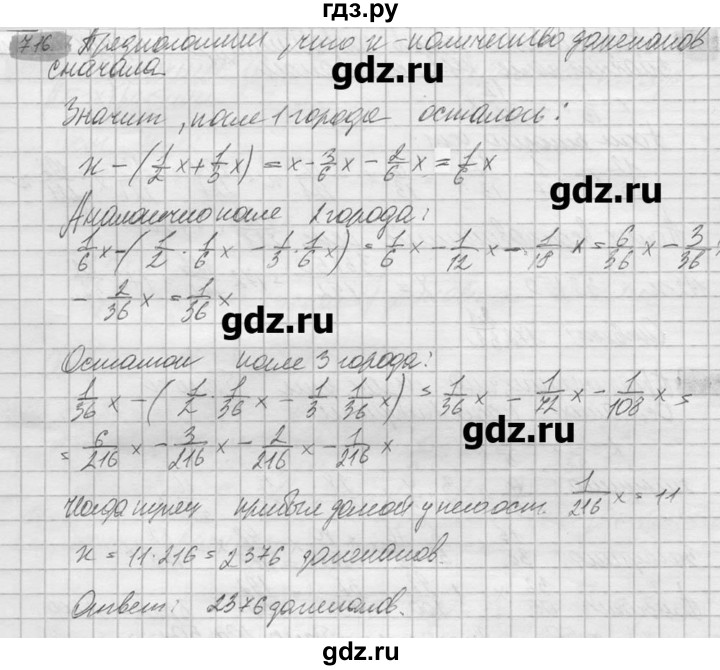 гдз.ру
716. Предположим, что x - количество данеканов
сначала.
гдз.ру
Значит, после 1 города осталось:
x - (1/2 x + 1/3 x) = x - 3/6 x - 2/6 x = 1/6 x
гдз.ру
Аналогично после 2 города:
1/6 x - (1/2 · 1/6 x - 1/3 · 1/6 x) = 1/6 x - 1/12 x - 1/18 x = 6/36 x - 3/36
- 2/36 x = 1/36 x
гдз.ру
Остаток после 3 города:
1/36 x - (1/2 · 1/36 x - 1/3 · 1/36 x) = 1/36 x - 1/72 x - 1/108 x =
= 6/216 x - 3/216 x - 2/216 x - 1/216 x
гдз.ру
Когда купец прибыл домой у него ост. 1/216 x = 11
x = 11·216 = 2376 данеканов.
Ответ: 2376 данеканов.
гдз.ру